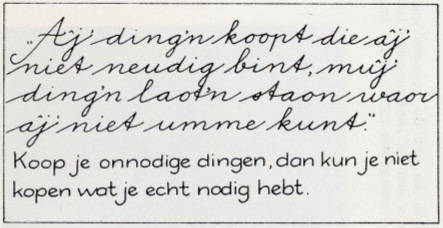 „Aj' ding'n koopt die aj'
niet neudig bint, muj'
ding'n laot'n staon waor
aj' niet umme kunt."
Koop je onnodige dingen, dan kun je niet
kopen wat je echt nodig hebt.